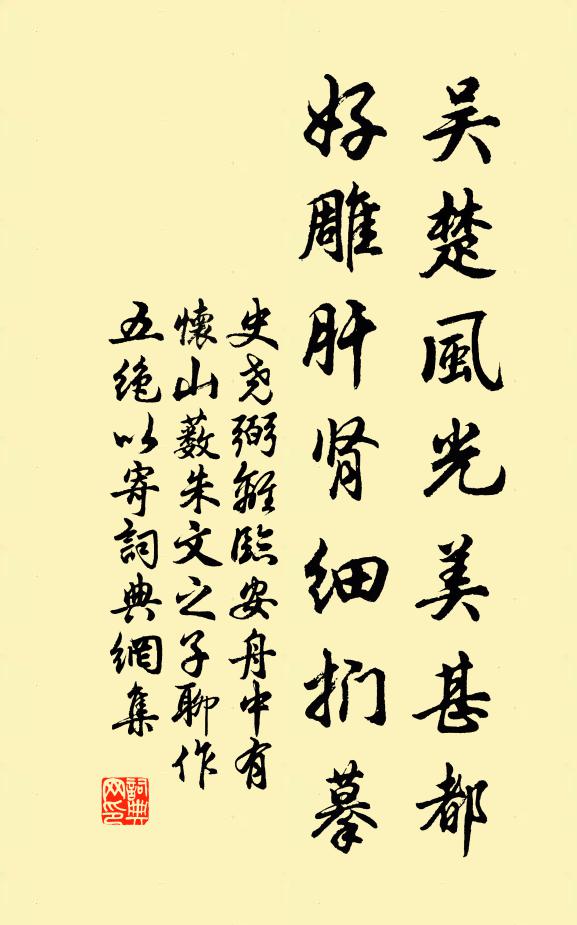 吴楚風光美甚都
好雕肝肾细捫摹
史尧弼離臨安舟中有
懷山薮朱文之子聊作
五绝以寄詞典網集
詞典
网印